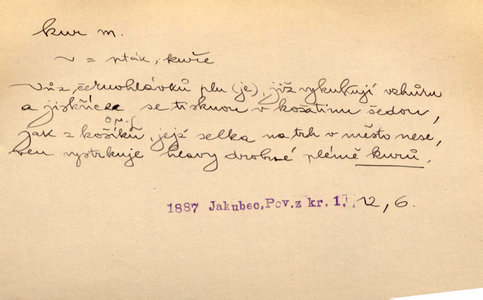 kur m.
v = pták, kuře
Vůz černohlávků plu (je), již vykukují vzhůru
a jiskříce se tisknou v košatinu šedou,
jak z košíků, jejž selka na trh v město nese,
ven vystrkuje hlavy drobné plémě kurů.
1887 Jakubec, Pov. z kr. 1., 12, 6.